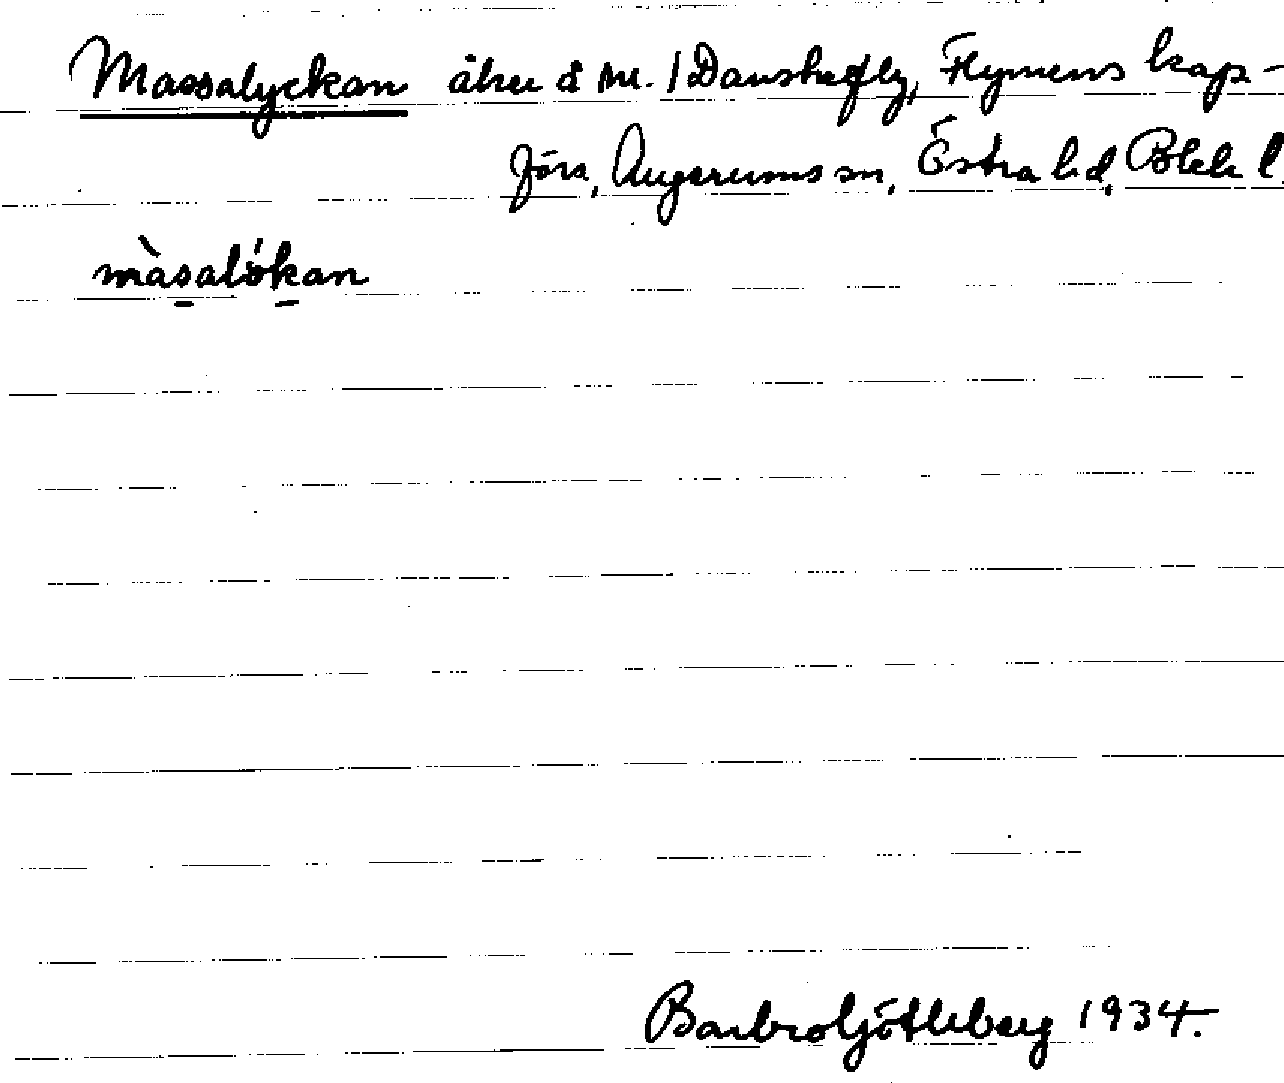 Massalyckan åker å nr. 1 Danskefly, Flymens kap-
förs., Augerums sn, Östra hd, Blek l.
màsalỏkan
Barbro Götleberg 1934.